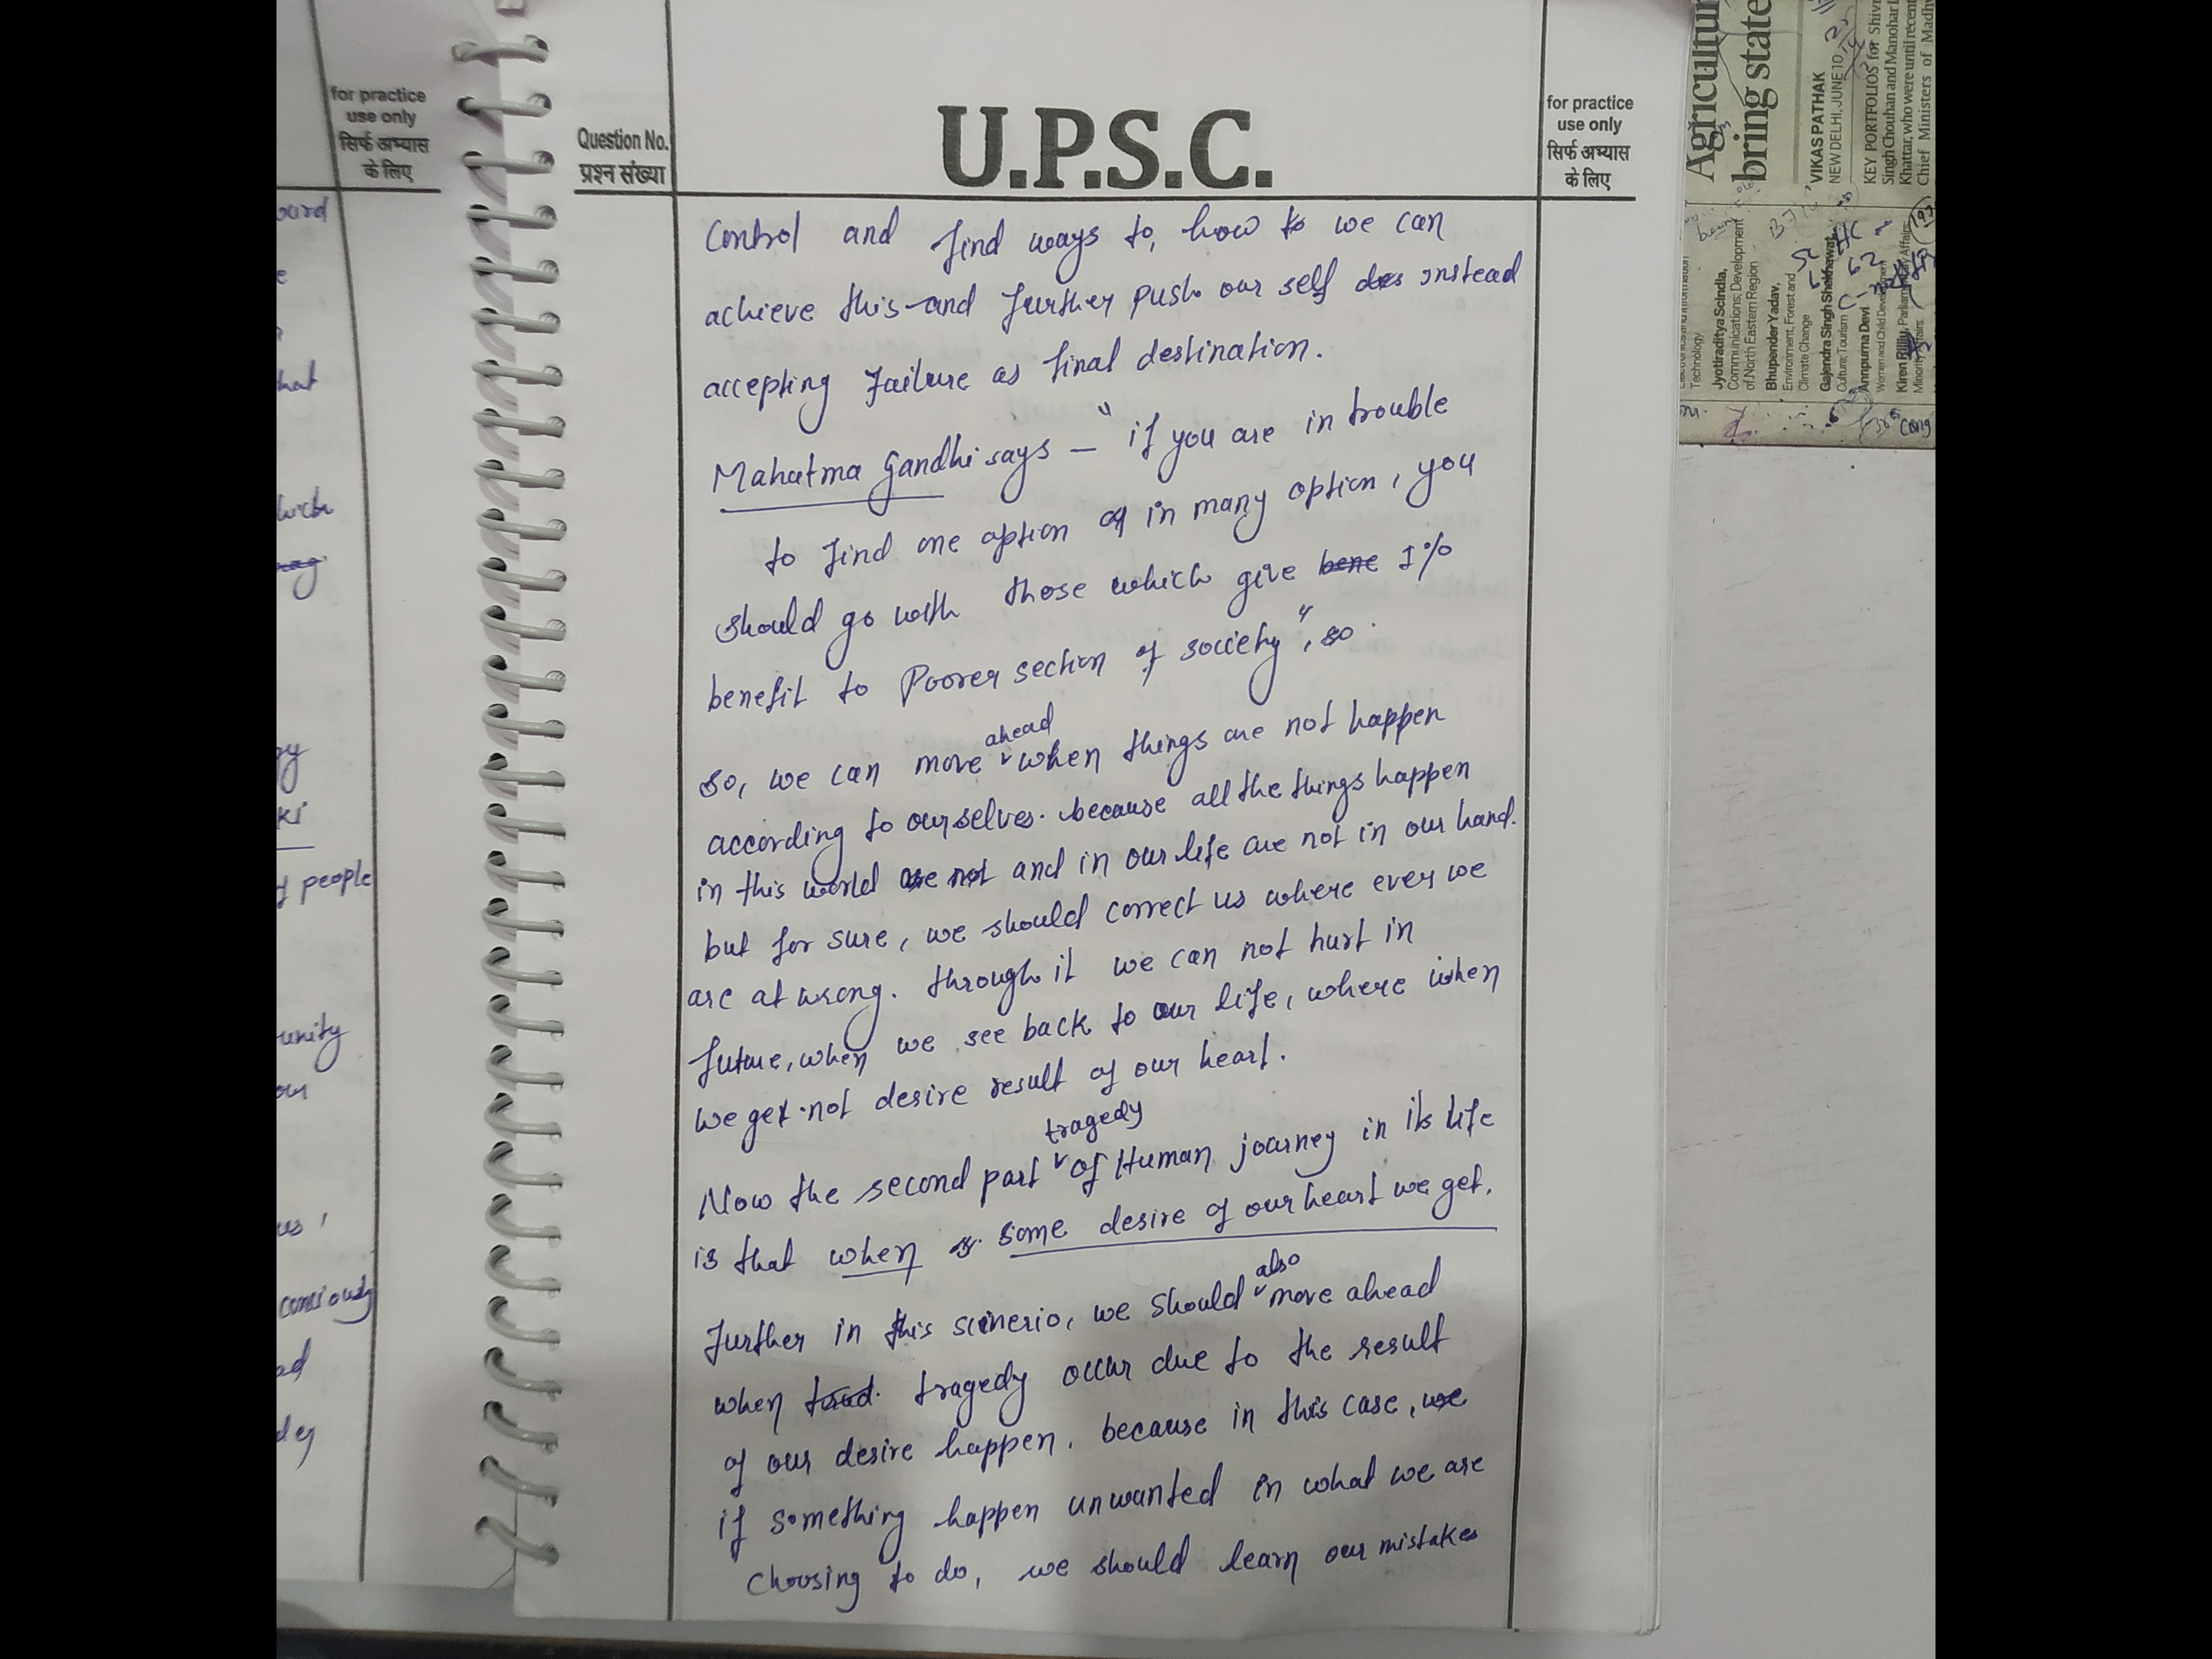 for practice
use only
सिर्फ अभ्यास
के लिए
ourd
hat
which
gy
ki
people
unity
our
us,
ad
Question No.
प्रश्न संख्या
U.P.S.C.
for practice
use only
सिर्फ अभ्यास
के लिए
Control and find ways to, how to we can
achieve this and further push our self instead
accepting failure as final destination.
Mahatma Gandhi says - "if you are in trouble
to find one option in many option, you
should go with those which give bene 1%
benefit to Poorer section of society", so
so, we can move ahead when things are not happen
according to ourselves. because all the things happen
in this world are not and in our life are not in our hand.
but for sure, we should correct us where ever we
are at wrong. through it we can not hurt in
future, when we see back to our life, where when
we get not desire result of our heart.
Now the second part tragedy of Human journey in its life
is that when some desire of our heart we get.
further in this scinerio, we should also move ahead
when tragedy occur due to the result
of our desire happen. because in this case, we
if something happen unwanted in what we are
choosing to do, we should learn our mistakes
Agricultur
bring state
VIKAS PATHAK
NEW DELHI, JUNE 10
KEY PORTFOLIOS for Shivr
Singh Chouhan and Manohar L
Khattar, who were until recent
Chief Ministers of Madhy
Technology
Jyotiraditya Scindia,
Communications; Development
of North Eastern Region
Bhupender Yadav,
Environment, Forest and
Climate Change
Gajendra Singh Shekhawat,
Culture; Tourism
Annpurna Devi
Women and Child Development
Kiren Rijiju,